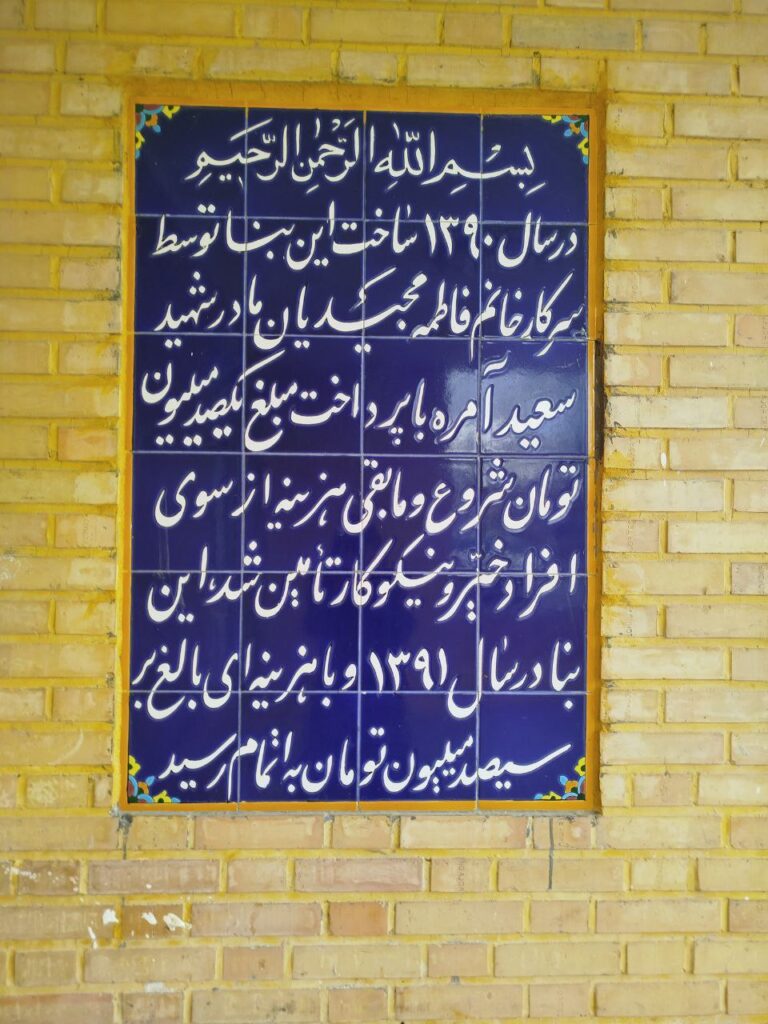 بِسْمِ اللهِ الرَّحْمٰنِ الرَّحیٖمِ
درسال ۱۳۹۰ ساخت این بنا توسط
سرکار خانم فاطمه مجیدیان مادر شهید
سعید آمره با پرداخت مبلغ یکصد میلیون
تومان شروع و مابقی هزینه از سوی
افراد خیّر و نیکوکار تأمین شد، این
بنا در سال ۱۳۹۱ و با هزینه ای بالغ بر
سیصد میلیون تومان به اتمام رسید